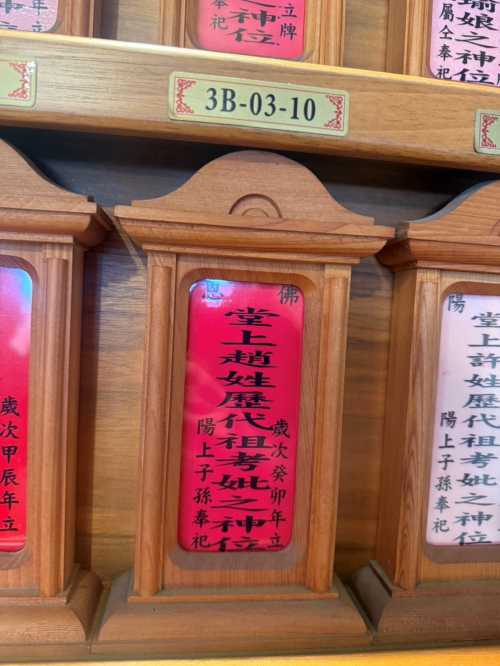 年立
奉祀
之神位
立牌
瑜娘之神
屬仝奉祀
3B-03-10
歲次甲辰年立
佛 恩
堂上趙姓歷代祖考妣之神位
歲次癸卯年立
陽上子孫奉祀
陽
堂上許姓歷代祖考妣之神位
陽上子孫奉祀